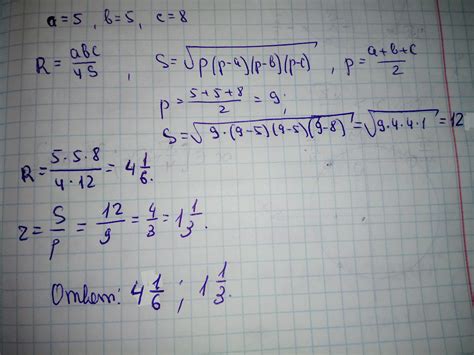 a=5, b=5, c=8
R = abc/4S, S = √p(p-a)(p-b)(p-c), p = a+b+c/2
p = 5+5+8/2 = 9;
S = √9·(9-5)(9-5)(9-8) = √9·4·4·1 = 12
R = 5·5·8/4·12 = 4 1/6.
r = S/p = 12/9 = 4/3 = 1 1/3.
Ответ: 4 1/6; 1 1/3.